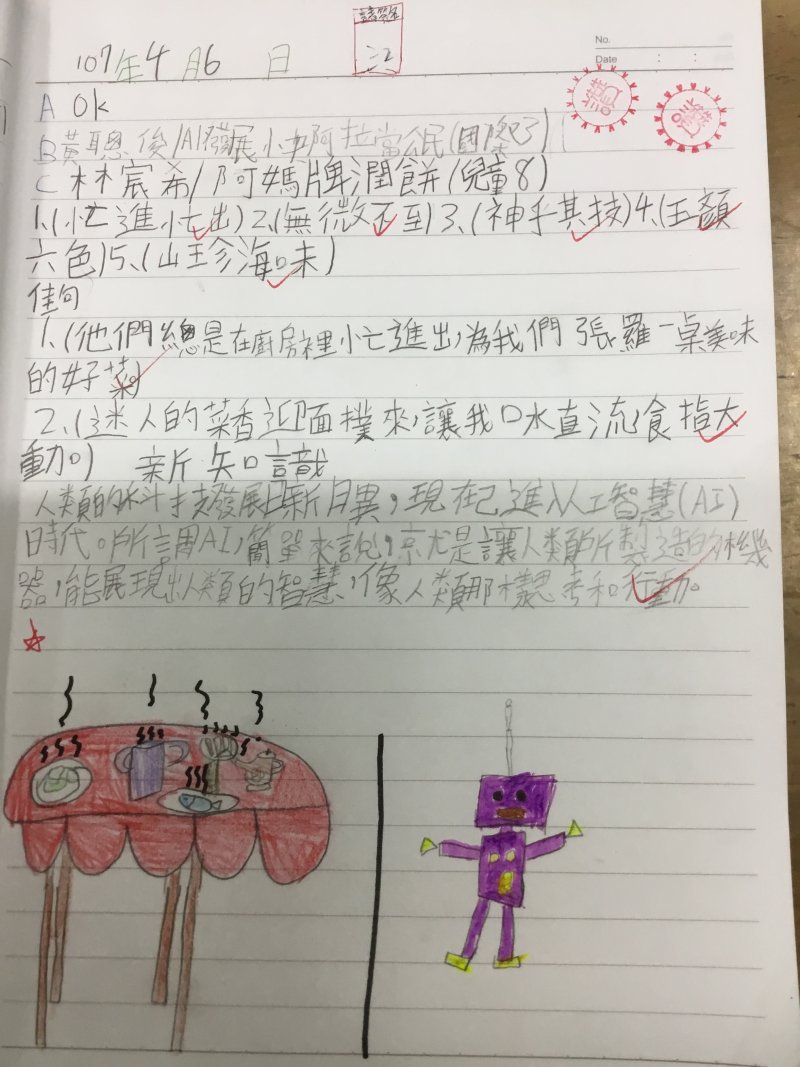 107年4月6日
No.
Date : :
A Ok
B黃聰俊/AI發展小女阿拉當公民(國
C 林宸希/阿媽牌潤餅(兒童8)
1.(忙進忙出)2.(無微不至)3.(神乎其技)4.(五顏
六色)5.(山珍海味)
佳句
1.(他們總是在廚房裡忙進出,為我們張羅一桌美味
的好菜)
2.(迷人的菜香迎面撲來,讓我口水直流,食指大
動。) 新知識
人類的科技發展日新月異,現在已進入人工智慧(AI)
時代。所謂AI,簡單來說,就是讓人類所製造的機
器,能展現出人類的智慧,像人類那樣思考和行動。